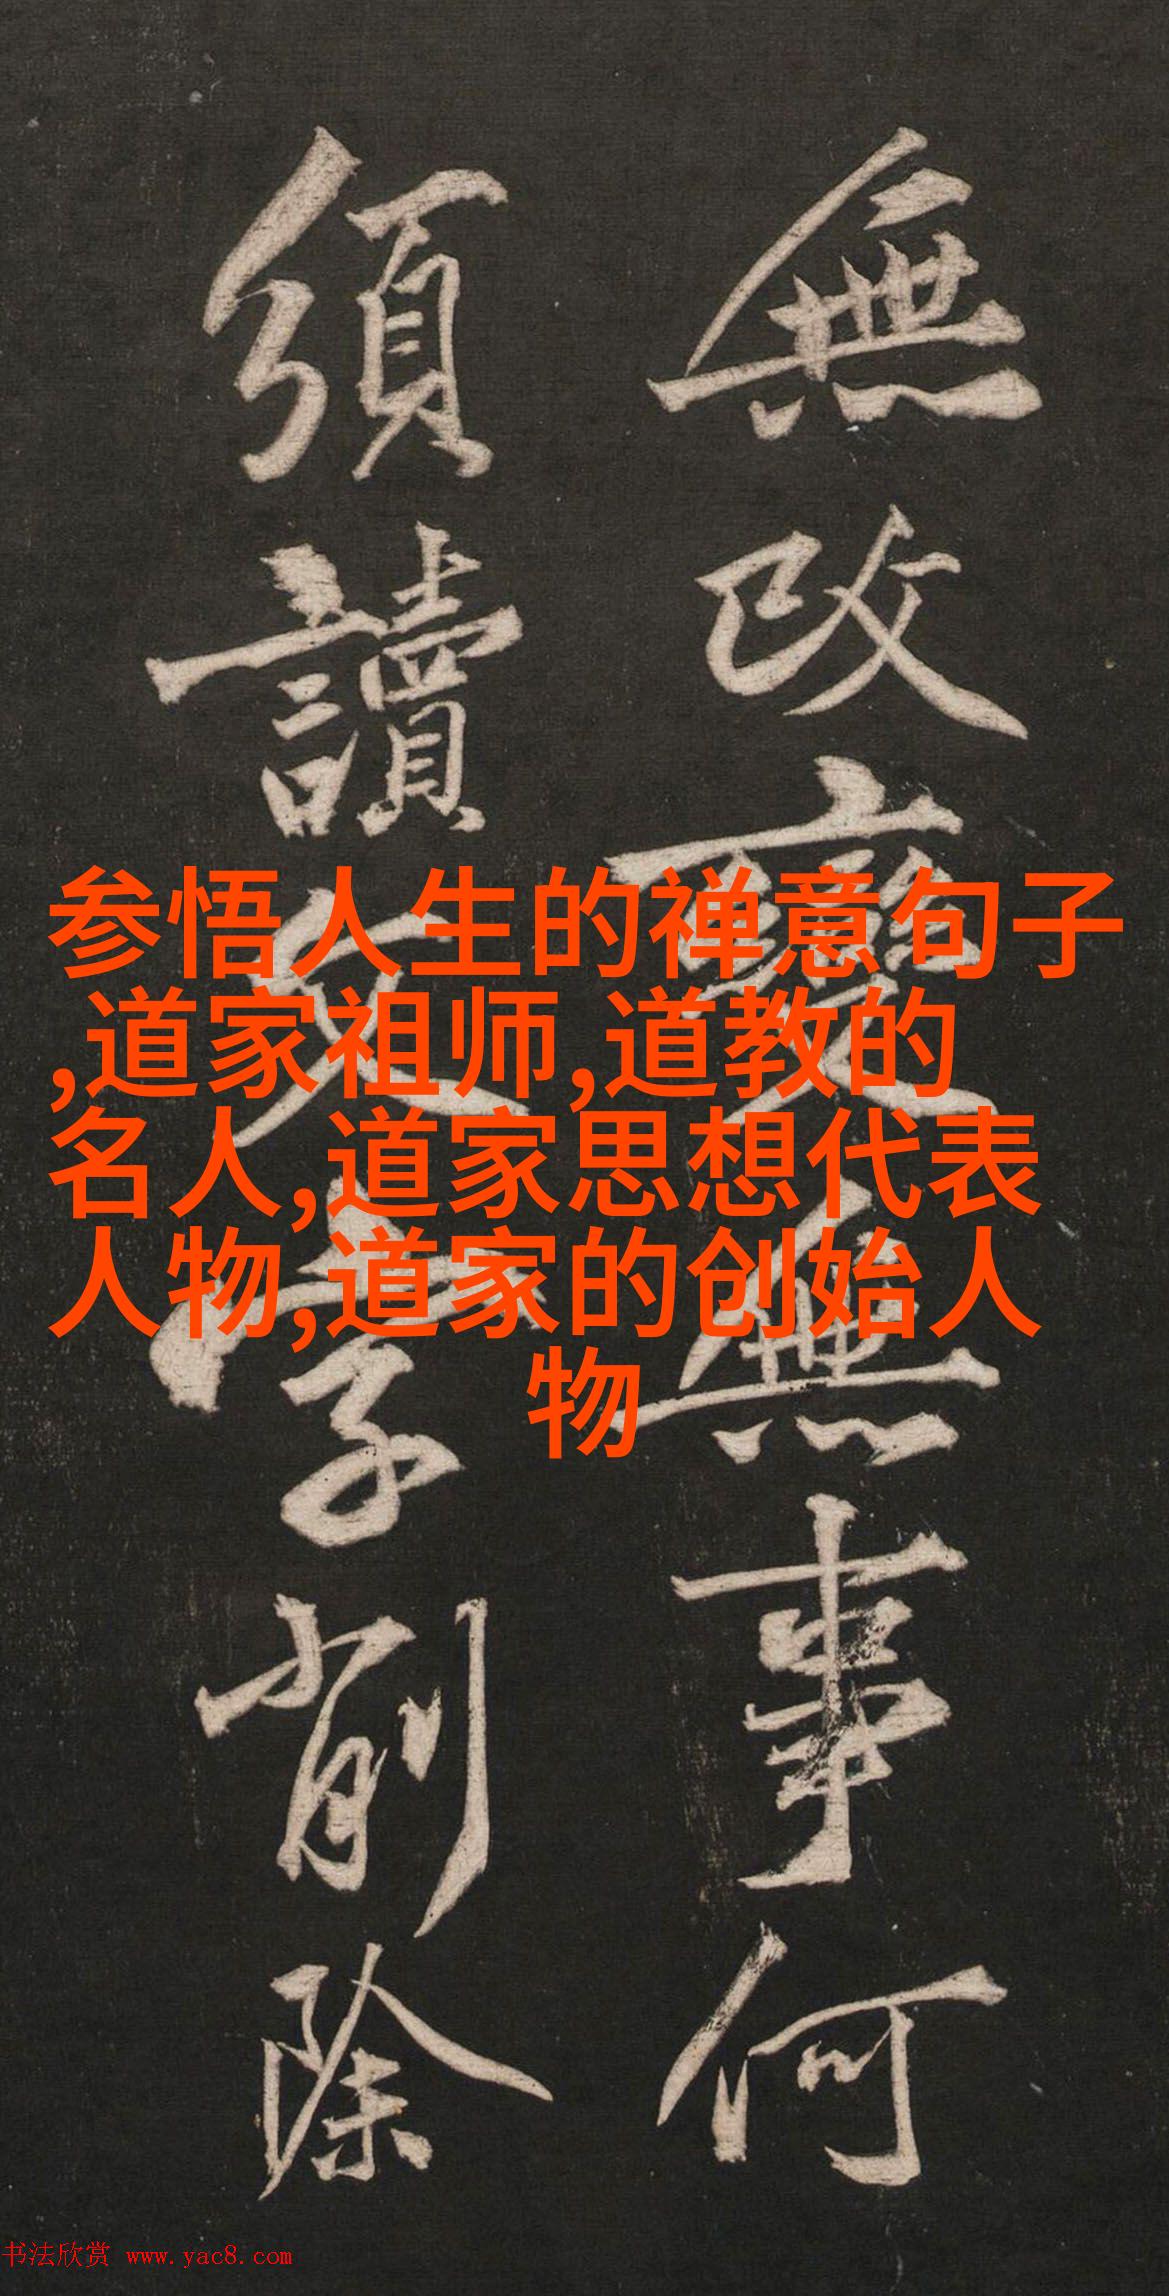 無改變無事何
須讀文字削除
参悟人生的禅意句子
,道家祖师,道教的
名人,道家思想代表
人物,道家的创始人
物
书法欣赏 www.yac8.com